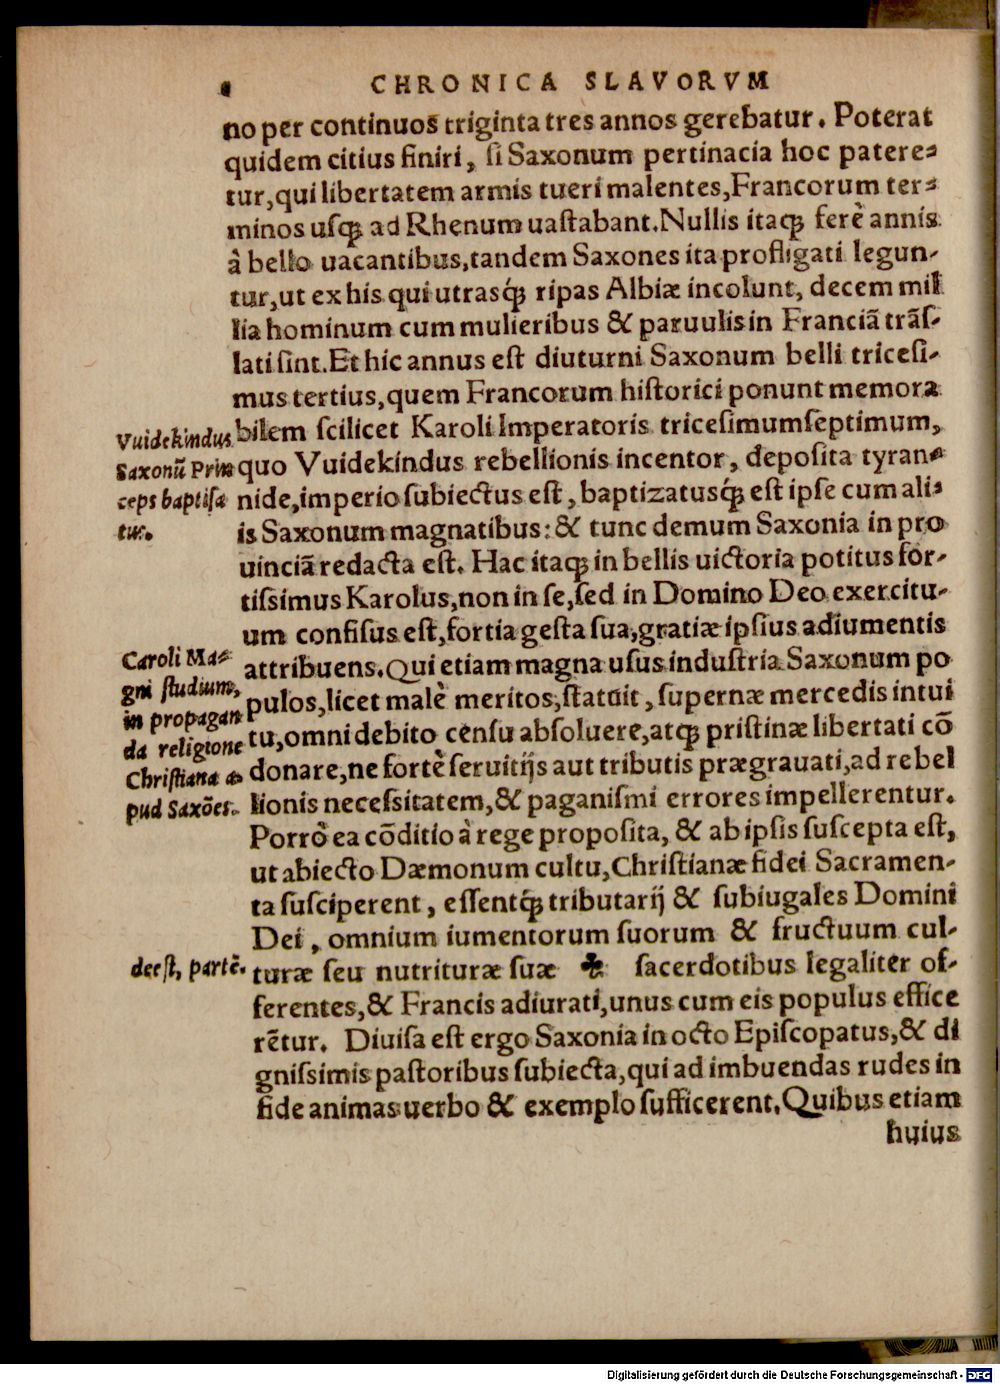 CHRONICA SLAVORVM
no per continuos triginta tres annos gerebatur. Poterat
quidem citius finiri, ſi Saxonum pertinacia hoc patere⸗
tur, qui libertatem armis tueri malentes, Francorum ter⸗
minos uſqꝫ ad Rhenum uaſtabant. Nullis itaqꝫ ferè annis
à bello uacantibus, tandem Saxones ita profligati legun-
tur, ut ex his qui utrasqꝫ́ ripas Albiæ incolunt, decem mil
lia hominum cum mulieribus & paruulis in Franciã trãſ-
lati ſint. Et hic annus eſt diuturni Saxonum belli triceſi-
mus tertius, quem Francorum hiſtorici ponunt memora
Vuidekindus
Saxonũ Prin
ceps baptiſa
tur.
bilem ſcilicet Karoli Imperatoris triceſimumſeptimum,
quo Vuidekindus rebellionis incentor, depoſita tyran⸗
nide, imperio ſubiectus eſt, baptizatusqꝫ́ eſt ipſe cum ali⸗
is Saxonum magnatibus: & tunc demum Saxonia in pro
uinciã redacta eſt. Hac itaqꝫ in bellis uictoria potitus for-
tiſsimus Karolus, non in ſe, ſed in Domino Deo exercitu-
um confiſus eſt, fortia geſta ſua, gratiæ ipſius adiumentis
Caroli Ma⸗
gni ſtudium,
in propagan
da religione
Chriſtiana a⸗
pud Saxões.
attribuens. Qui etiam magna uſus induſtria Saxonum po
pulos, licet malè meritos, ſtatuit, ſupernæ mercedis intui
tu, omni debito cenſu abſoluere, atqꝫ priſtinæ libertati cõ
donare, ne fortè ſeruitijs aut tributis prægrauati, ad rebel
lionis neceſsitatem, & paganiſmi errores impellerentur.
Porrò ea cõditio à rege propoſita, & ab ipſis ſuſcepta eſt,
ut abiecto Dæmonum cultu, Chriſtianæ fidei Sacramen-
ta ſuſciperent, eſſentqꝫ́ tributarij & ſubiugales Domini
Dei, omnium iumentorum ſuorum & fructuum cul-
deeſt, partē.
turæ ſeu nutrituræ ſuæ ✤ ſacerdotibus legaliter of-
ferentes, & Francis adiurati, unus cum eis populus effice
rẽtur. Diuiſa eſt ergo Saxonia in octo Epiſcopatus, & di
gniſsimis paſtoribus ſubiecta, qui ad imbuendas rudes in
fide animas uerbo & exemplo ſufficerent. Quibus etiam
huius
Digitalisierung gefördert durch die Deutsche Forschungsgemeinschaft - DFG